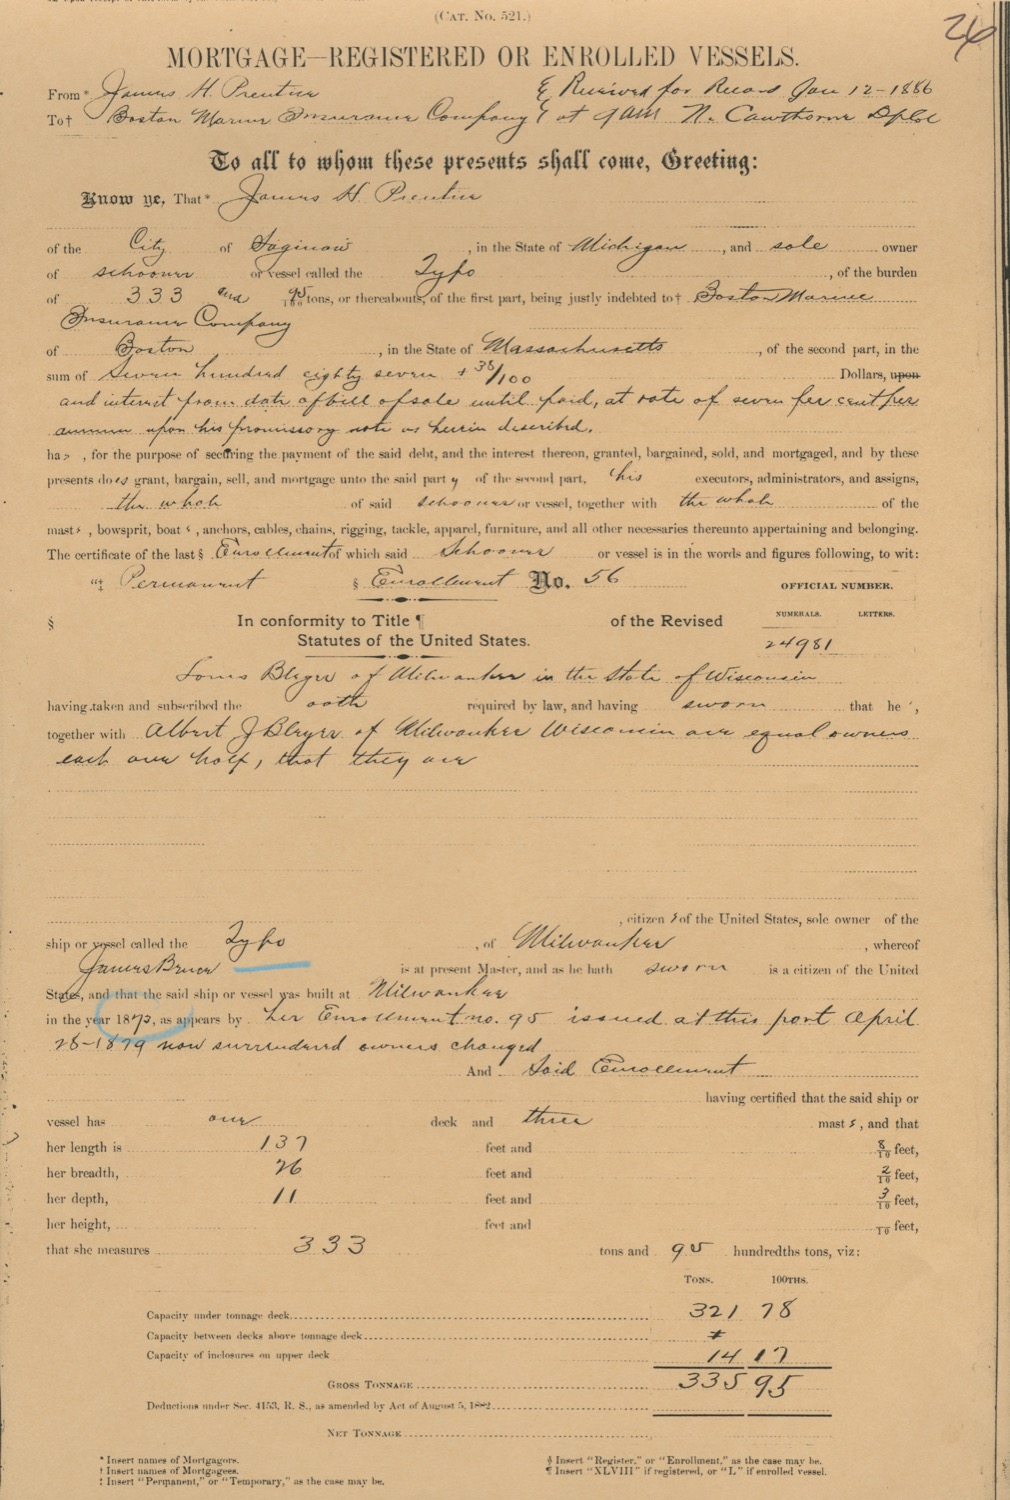 (CAT. No. 521.)
26
MORTGAGE—REGISTERED OR ENROLLED VESSELS.
From* James H. Prentice & Received for Record Jan 12-1886
To† Boston Marine Insurance Company & at 9 AM N. Cawthorne
To all to whom these presents shall come, Greeting:
Know ye, That* James H. Prentice
of the City of Saginaw, in the State of Michigan, and sole owner
of schooner or vessel called the Typo, of the burden
of 333 and 95/100 tons, or thereabouts, of the first part, being justly indebted to† Boston Marine
Insurance Company
of Boston, in the State of Massachusetts, of the second part, in the
sum of Seven hundred eighty seven + 38/100 Dollars, upon
and interest from date of bill of sale until paid, at rate of seven per cent per
annum upon his promissory note as herein described.
has, for the purpose of securing the payment of the said debt, and the interest thereon, granted, bargained, sold, and mortgaged, and by these
presents does grant, bargain, sell, and mortgage unto the said party of the second part, his executors, administrators, and assigns,
the whole of said schooner or vessel, together with the whole of the
masts, bowsprit, boats, anchors, cables, chains, rigging, tackle, apparel, furniture, and all other necessaries thereunto appertaining and belonging.
The certificate of the last § Enrollment of which said Schooner or vessel is in the words and figures following, to wit:
"‡ Permanent § Enrollment No. 56 OFFICIAL NUMBER.
NUMERALS. LETTERS.
§ In conformity to Title ¶ of the Revised
Statutes of the United States. 24981
Louis Bleyer of Milwaukee in the State of Wisconsin
having taken and subscribed the oath required by law, and having sworn that he,
together with Albert J Bleyer of Milwaukee Wisconsin are equal owners
each one half, that they are
, citizens of the United States, sole owner of the
ship or vessel called the Typo, of Milwaukee, whereof
James Bruce is at present Master, and as he hath sworn is a citizen of the United
States, and that the said ship or vessel was built at Milwaukee
in the year 1873, as appears by her Enrollment no. 95 issued at this port April
28-1879 now surrendered owners changed
And Said Enrollment
having certified that the said ship or
vessel has one deck and three masts, and that
her length is 137 feet and 8/10 feet,
her breadth, 26 feet and 2/10 feet,
her depth, 11 feet and 3/10 feet,
her height, feet and /10 feet,
that she measures 333 tons and 95 hundredths tons, viz:
TONS. 100THS.
Capacity under tonnage deck 321 78
Capacity between decks above tonnage deck
Capacity of inclosures on upper deck 14 17
GROSS TONNAGE 335 95
Deductions under Sec. 4153, R. S., as amended by Act of August 5, 1882
NET TONNAGE
* Insert names of Mortgagors.
† Insert names of Mortgagees.
‡ Insert "Permanent," or "Temporary," as the case may be.
§ Insert "Register," or "Enrollment," as the case may be.
¶ Insert "XLVIII" if registered, or "L" if enrolled vessel.